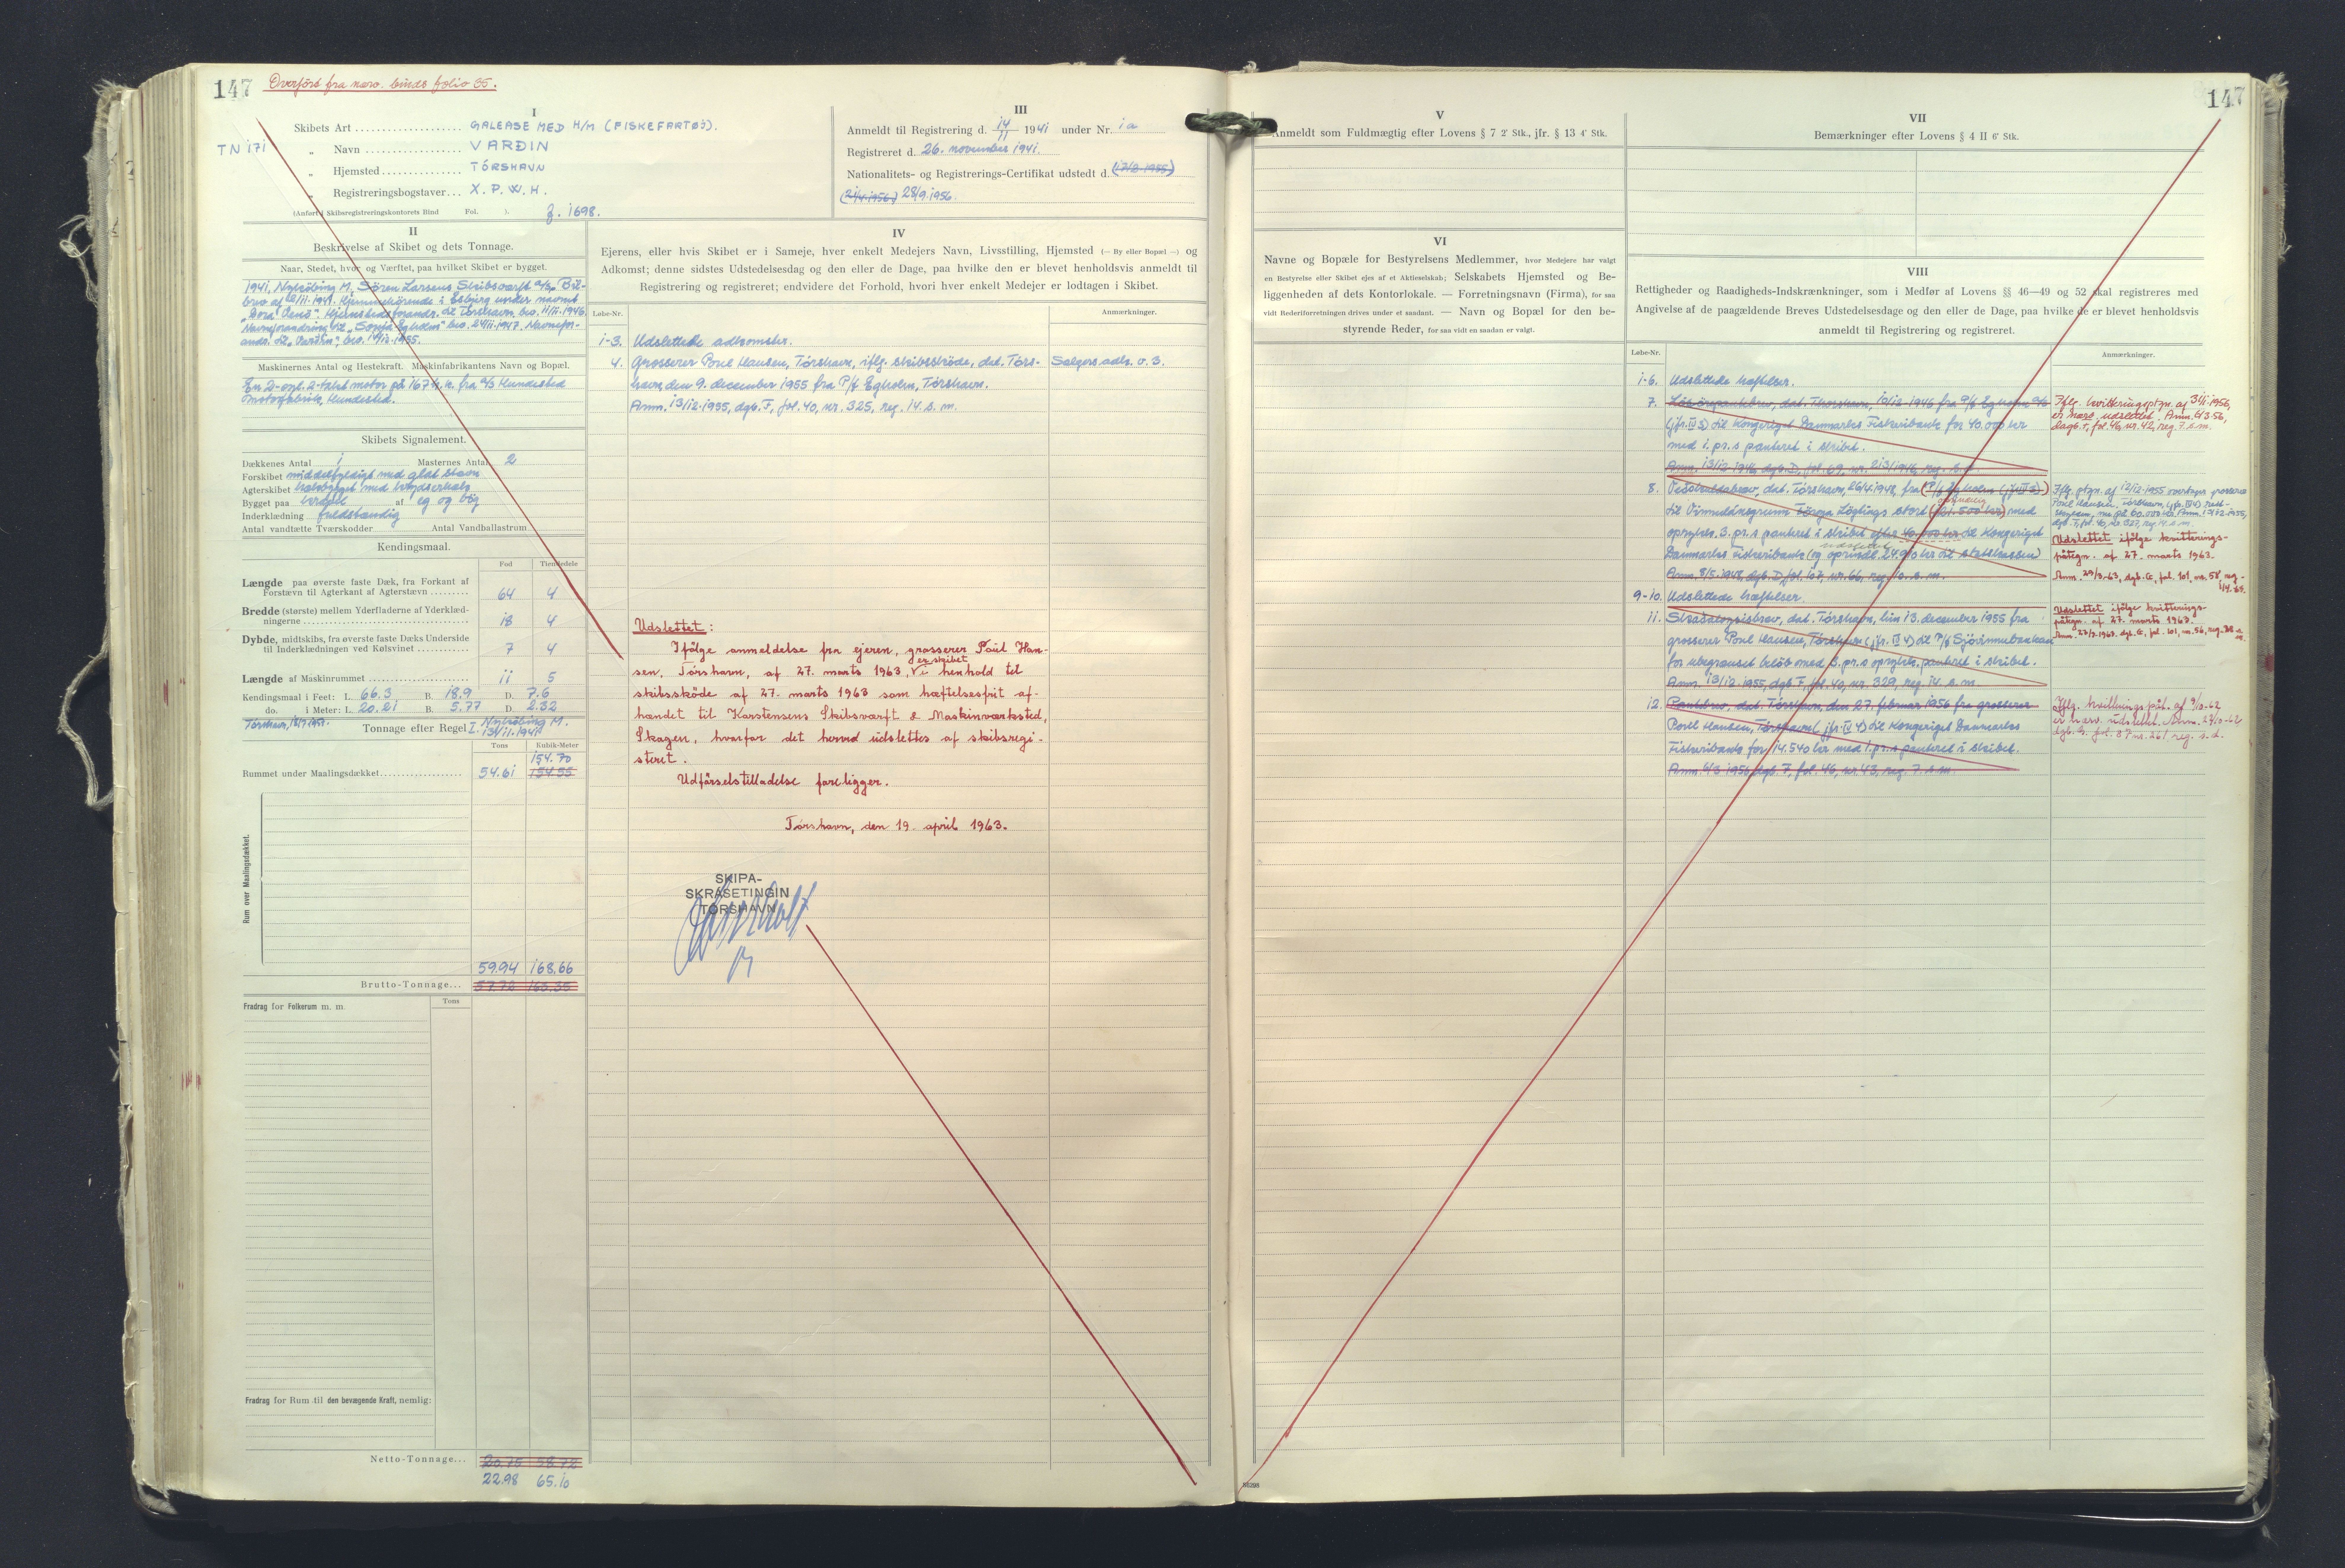 147 Overført fra nærv. binds folio 35.
I
Skibets Art GALEASE MED H/M (FISKEFARTØJ).
TN 171 „ Navn VARÐIN
„ Hjemsted TÓRSHAVN
„ Registreringsbogstaver... X. P. W. H.
(Anført i Skibsregistreringskontorets Bind Fol. ). F. 1698.
II
Beskrivelse af Skibet og dets Tonnage.
Naar, Stedet, hvor og Værftet, paa hvilket Skibet er bygget.
1941, Nykøbing M, Sören Larsens Skibsværft
under navnet
Hjemstedsforandr. til Tórshavn bev. 11/11-1946.
Navneforandring til „Sonja Egholm" bev. 24/11-1947. Navnefor-
andr. til „Varðin", bev. 19/12-1955.
Maskinernes Antal og Hestekraft. Maskinfabrikantens Navn og Bopæl.
En 2-cyl. 2-takt motor på 167 h.k. fra A/S Hundested
Motorfabrik, Hundested.
Skibets Signalement.
Dækkenes Antal 1 Masternes Antal 2
Forskibet middelfyldigt med glat stævn
Agterskibet
Bygget paa kravel af eg og bøg
Inderklædning fuldstændig
Antal vandtætte Tværskodder Antal Vandballastrum
Kendingsmaal.
Fod Tiendedele
Længde paa øverste faste Dæk, fra Forkant af
Forstævn til Agterkant af Agterstævn 64 4
Bredde (største) mellem Yderfladerne af Yderklæd-
ningerne 18 4
Dybde, midtskibs, fra øverste faste Dæks Underside
til Inderklædningen ved Kølsvinet 7 4
Længde af Maskinrummet 11 5
Kendingsmaal i Feet: L. 66.3 B. 18.9 D. 7.6
do. i Meter: L. 20.21 B. 5.77 D. 2.32
Tonnage efter Regel I. Nykøbing M.
13/11-1941
Tons Kubik-Meter
154.70
Rummet under Maalingsdækket 54.61 154.55
Rum over Maalingsdækket.
59.94 168.66
Brutto-Tonnage... 57.72 163.35
Fradrag for Folkerum m. m. Tons
Fradrag for Rum til den bevægende Kraft, nemlig:
Netto-Tonnage... 20.75 58.72
22.98 65.10
III
Anmeldt til Registrering d. 14/11 1941 under Nr. 1a
Registreret d. 26. november 1941.
Nationalitets- og Registrerings-Certifikat udstedt d.
28/9.1956.
IV
Ejerens, eller hvis Skibet er i Sameje, hver enkelt Medejers Navn, Livsstilling, Hjemsted (— By eller Bopæl —) og
Adkomst; denne sidstes Udstedelsesdag og den eller de Dage, paa hvilke den er blevet henholdsvis anmeldt til
Registrering og registreret; endvidere det Forhold, hvori hver enkelt Medejer er lodtagen i Skibet.
Løbe-Nr. Anmærkninger.
1-3. Udslettede adkomster.
4. Grosserer Poul Hansen, Tórshavn, iflg. skibsskøde, dat. Tórs- Sælgers adk. o. 3.
havn, den 9. december 1955 fra P/f Egholm, Tórshavn.
Anm. 13/12-1955, dgb. F, fol. 40, nr. 325, reg. 14. s. m.
Udslettet:
Ifølge anmeldelse fra ejeren, grosserer Poul Han-
sen, Tórshavn, af 27. marts 1963, er skibet i henhold til
skibsskøde af 27. marts 1963 som hæftelsesfrit af-
hændet til Karstensens Skibsværft & Maskinværksted,
Skagen, hvorfor det herved udslettes af skibsregi-
steret.
Udførselstilladelse foreligger.
Tórshavn, den 19. april 1963.
SKIPA-
SKRÁSETINGIN
TÓRSHAVN
V
Anmeldt som Fuldmægtig efter Lovens § 7 2' Stk., jfr. § 13 4' Stk.
VI
Navne og Bopæle for Bestyrelsens Medlemmer, hvor Medejere har valgt
en Bestyrelse eller Skibet ejes af et Aktieselskab; Selskabets Hjemsted og Be-
liggenheden af dets Kontorlokale. — Forretningsnavn (Firma), for saa
vidt Rederiforretningen drives under et saadant. — Navn og Bopæl for den be-
styrende Reder, for saa vidt en saadan er valgt.
147
VII
Bemærkninger efter Lovens § 4 II 6' Stk.
VIII
Rettigheder og Raadigheds-Indskrænkninger, som i Medfør af Lovens §§ 46—49 og 52 skal registreres med
Angivelse af de paagældende Breves Udstedelsesdage og den eller de Dage, paa hvilke de er blevet henholdsvis
anmeldt til Registrering og registreret.
Løbe-Nr. Anmærkninger.
1-6. Udslettede hæftelser.
7. dat. Thorshavn, 10/12-1946 fra P/f Egholm
til Kongeriget Danmarks Fiskeribank for 40.000 kr
med 1. pr. s panteret i skibet.
Anm. 13/12-1946 dgb. D, fol. 69, nr. 213/1946 reg. s. d.
Iflg. kvitteringspåtgn. af 3/1-1956,
er nærv. udslettet. Anm. 6/3-56,
dagb. F, fol. 46, nr. 42, reg. 7. s. m.
8. dat. Tórshavn, 26/4.1948, fra (P/f Egholm (jfr. IV 3))
med
oprykn. 3. pr. s panteret i skibet efter 40.000 kr til Kongeriget
Danmarks Fiskeribank (og oprindl. 24.900 kr til statskassen)
Anm. 8/5-1948, dgb. D, fol. 107, nr. 66, reg. 10. s. m.
Iflg. ptgn. af 12/12-1955 overtager grosserer
Poul Hansen, Tórshavn, (jfr. IV 4)
Udslettet ifølge kvitterings-
påtegn. af 27. marts 1963.
Anm. 29/3-63, dgb. G, fol. 101, nr. 58, reg.
9-10. Udslettede hæftelser.
11. Skadesløsbrev, dat. Tórshavn, hin 13. december 1955 fra
grosserer Poul Hansen, Tórshavn (jfr. IV 4) til P/f Sjóvinnubankan
for ubegrænset beløb med 3. pr. s oprykn. panteret i skibet.
Anm. 13/12-1955, dgb. F, fol. 40, nr. 329, reg. 14. s. m.
Udslettet ifølge kvitterings-
påtegn. af 27. marts 1963.
12. Pantebrev, dat. Tórshavn, den 27. februar 1956 fra grosserer
Poul Hansen, Tórshavn (jfr. IV 4) til Kongeriget Danmarks
Fiskeribank for 14.540 kr med 1. pr. s panteret i skibet.
Anm. 6/3-1956, dgb. F, fol. 46, nr. 43, reg. 7. s. m.
Iflg. kvitteringspåt. af
er nærv. udslettet.
dgb. G. fol. 87 nr. 261 reg. s. d.